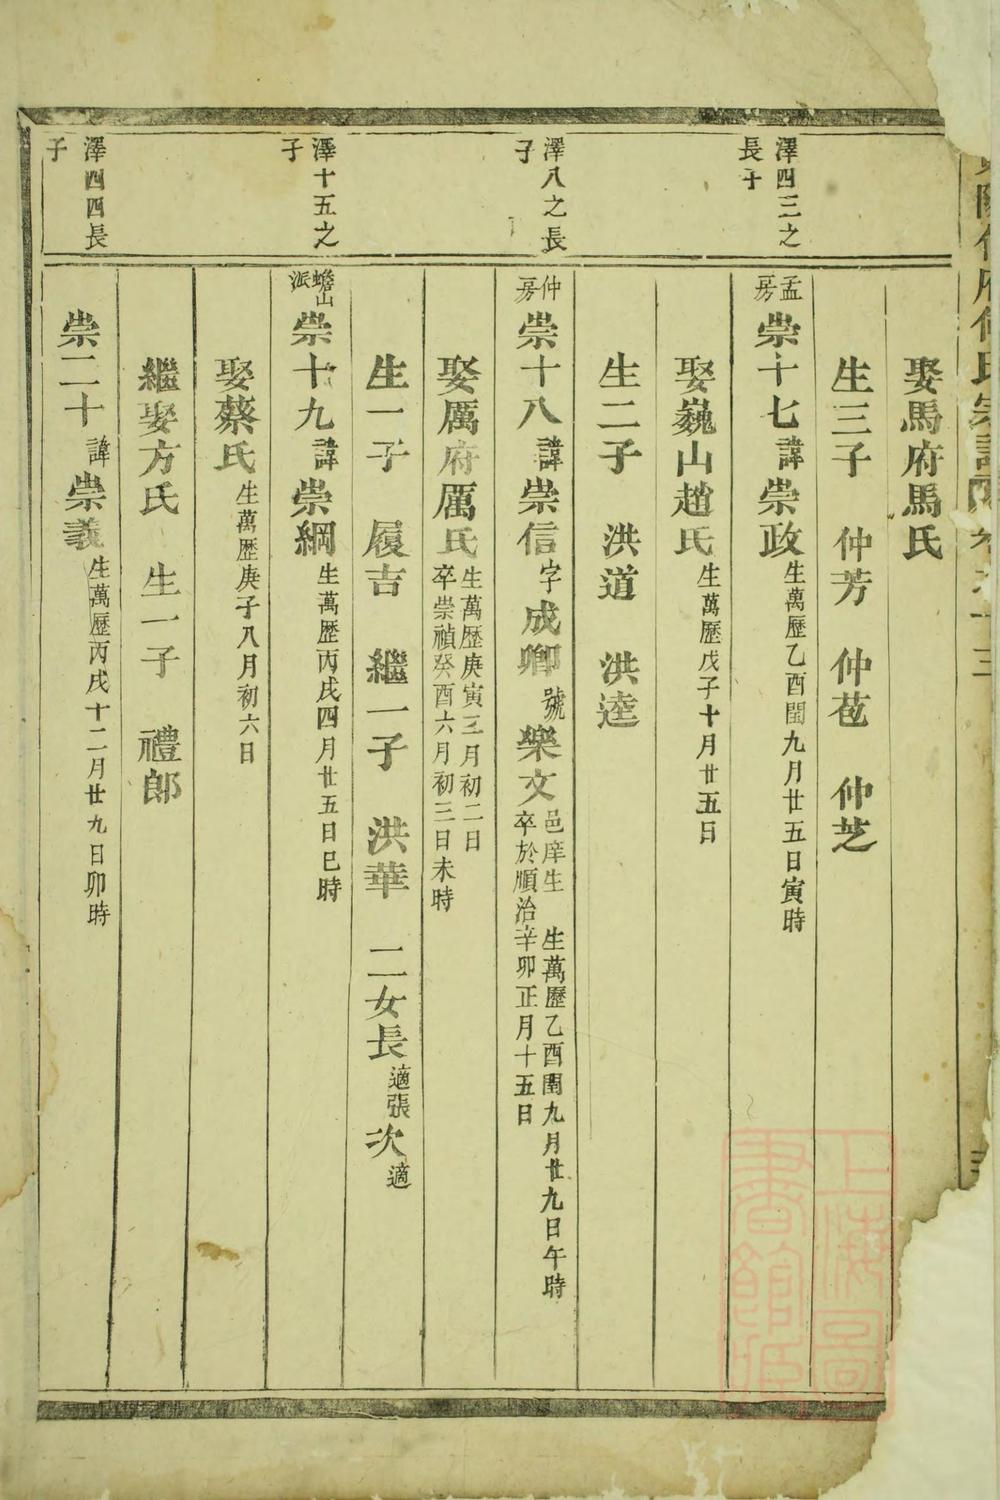 娶馬府馬氏
生三子 仲芳 仲苞 仲芝
澤四三之
長子
孟房 崇十七 諱 崇政 生萬歷乙酉閏九月廿五日寅時
娶巍山趙氏 生萬歷戊子十月廿五日
生二子 洪道 洪逵
澤八之長
子
仲房 崇十八 諱 崇信 字 成卿 號 樂文 邑庠生 生萬歷乙酉閏九月廿九日午時
卒於順治辛卯正月十五日
娶厲府厲氏 生萬歷庚寅三月初二日
卒崇禎癸酉六月初三日未時
生一子 履吉 繼一子 洪華 二女長 適張 次 適
澤十五之
子
蟾山派 崇十九 諱 崇綱 生萬歷丙戌四月廿五日巳時
娶蔡氏 生萬歷庚子八月初六日
繼娶方氏 生一子 禮郎
澤四四長
子
崇二十 諱 崇義 生萬歷丙戌十二月廿九日卯時
上海圖
書館藏